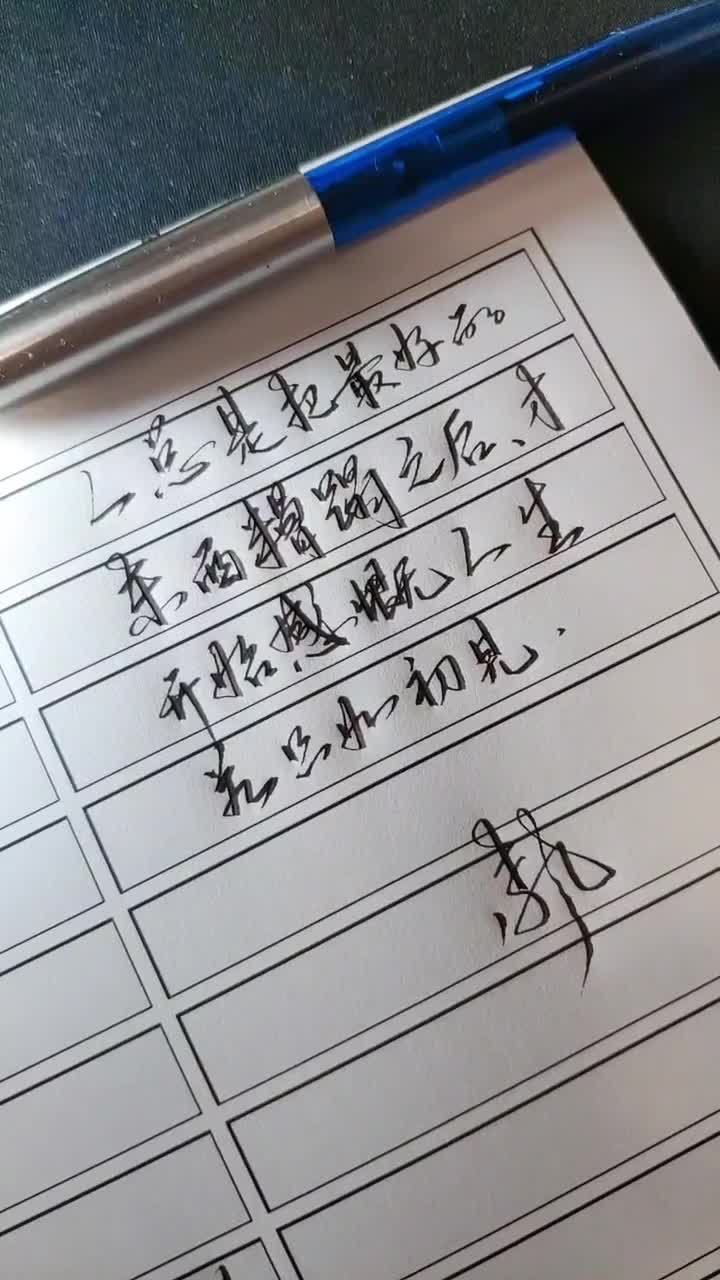 人总是把最好的
东西糟蹋之后、才
开始感慨人生
若只如初见.
郭